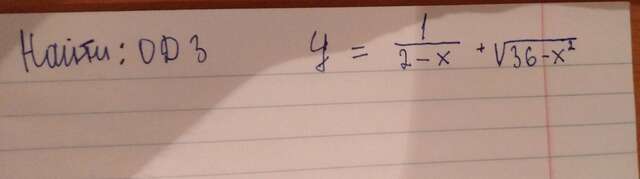 Найти: ОДЗ y = 1/(2-x) + √(36-x²)